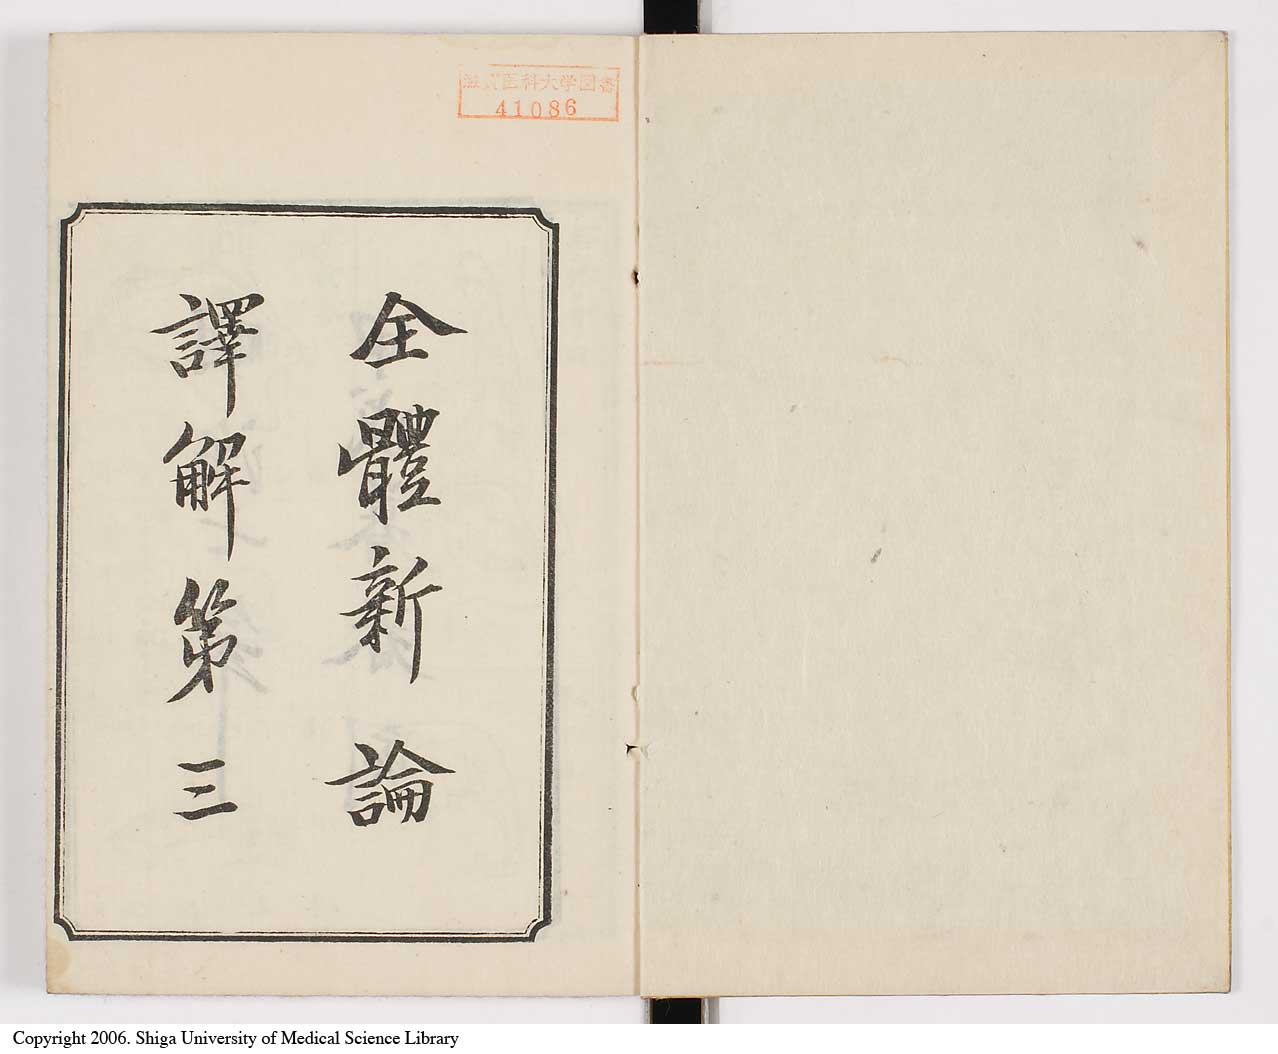 滋賀医科大学図書
41086
全體新論
譯解第三
Copyright 2006. Shiga University of Medical Science Library